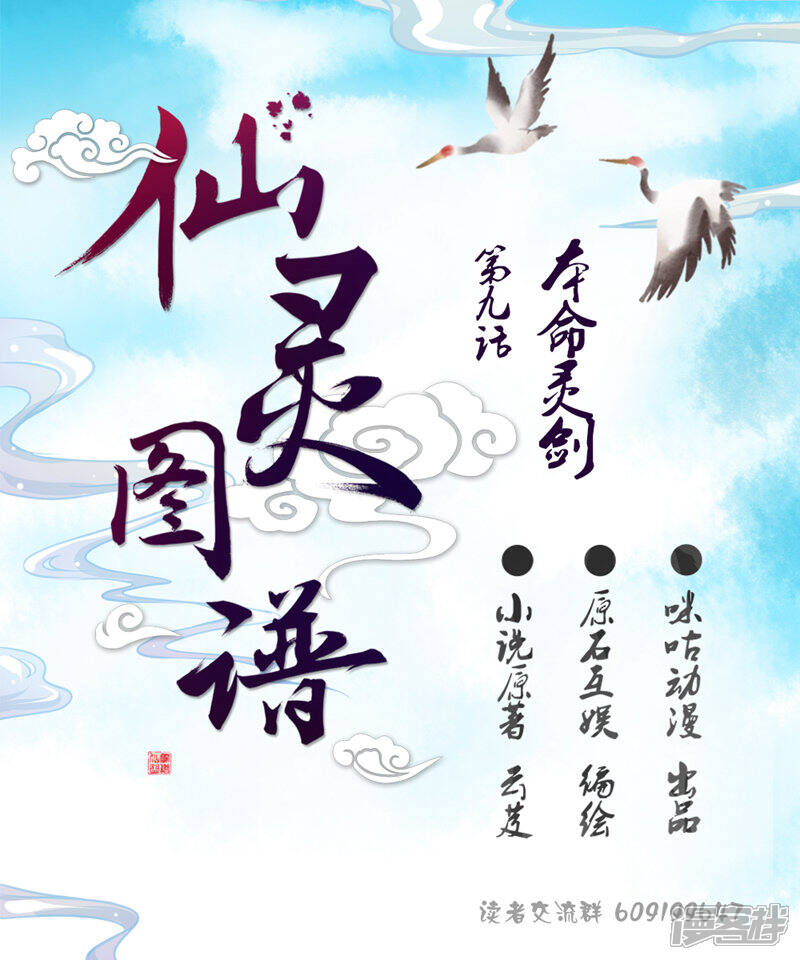 仙灵图谱
第九话
本命灵剑
咪咕动漫 出品
原石互娱 编绘
小说原著 云芨
读者交流群 609199647
漫客栈